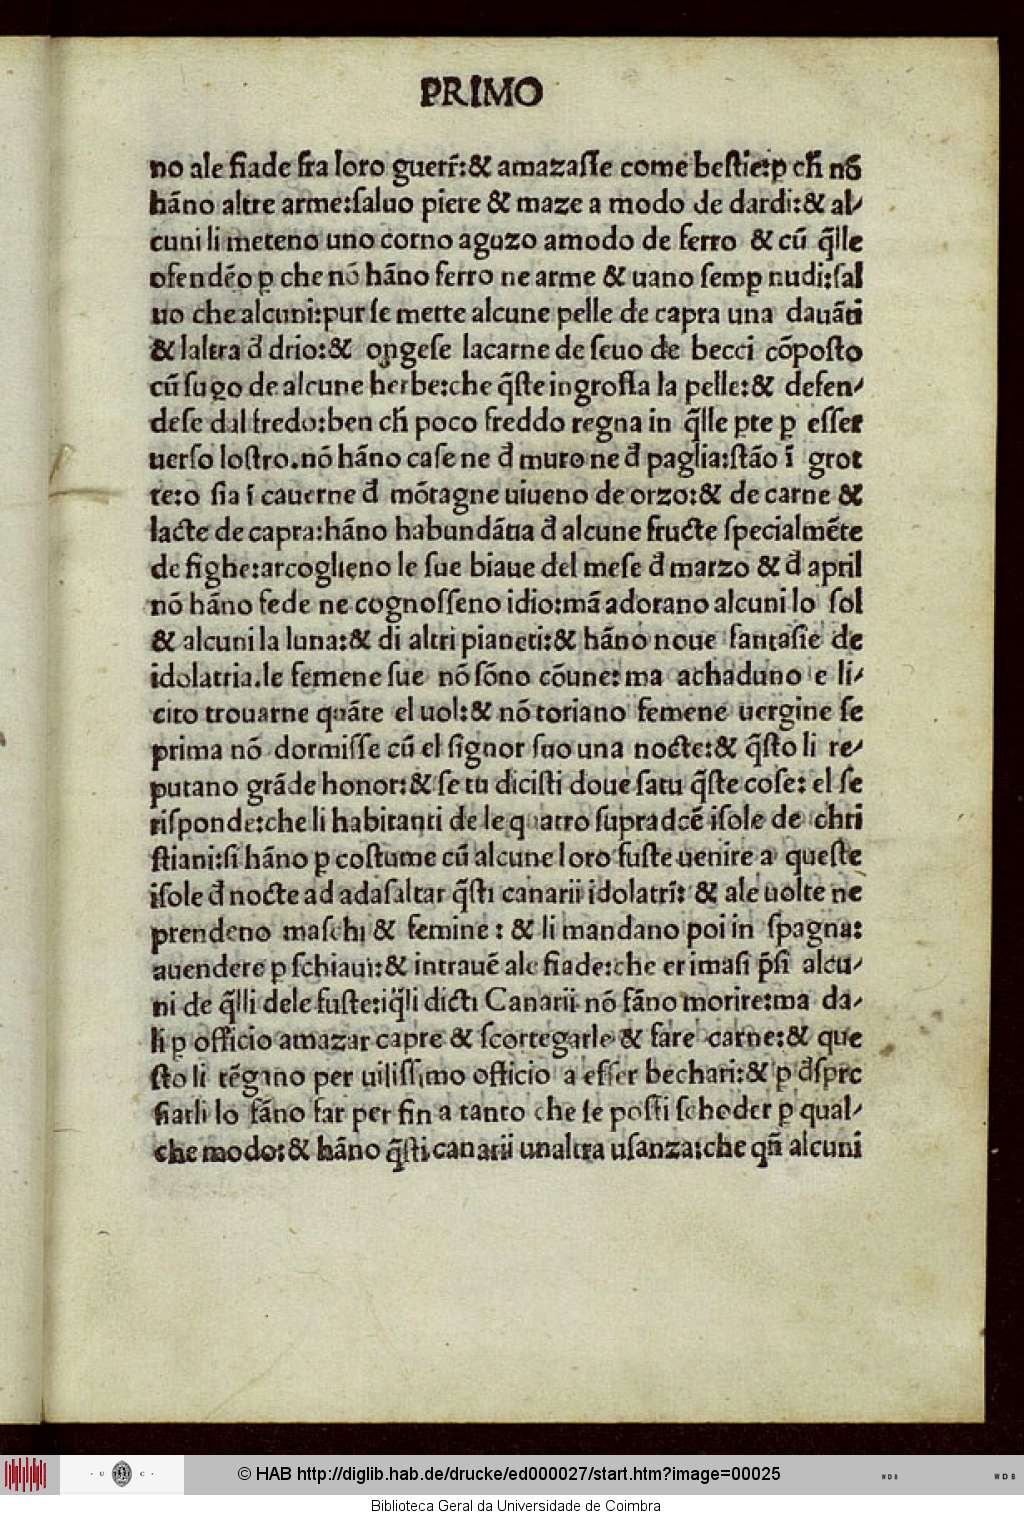 PRIMO
no ale fiade fra loro guerr̃:& amazaſſe come beſtie:ꝑ ch̃ nõ
hãno altre arme:ſaluo piere & maze a modo de dardi:& al-
cuni li meteno uno corno aguzo amodo de ferro & cũ q̃lle
ofendẽo ꝑ che nõ hãno ferro ne arme & uano ſemꝑ nudi:ſal
uo che alcuni:pur ſe mette alcune pelle de capra una dauãti
& laltra đ drio:& ongeſe lacarne de ſeuo de becci cõpoſto
cũ ſugo de alcune herbe:che q̃ſte ingroſſa la pelle:& defen-
deſe dal fredo:ben ch̃ poco freddo regna in q̃lle ꝑte ꝑ eſſer
uerſo loſtro.nõ hãno caſe ne đ muro ne đ paglia:ſtão ĩ grot
te:o ſia ĩ cauerne đ mõtagne uiueno de orzo:& de carne &
lacte de capra:hãno habundãtia đ alcune fructe ſpecialmẽte
de fighe:arcoglieno le ſue biaue del meſe đ marzo & đ april
nõ hãno fede ne cognoſſeno idio:mã adorano alcuni lo ſol
& alcuni la luna:& di altri pianeti:& hãno noue fantaſie de
idolatria.le femene ſue nõ ſõno cõune:ma achaduno e li-
cito trouarne quãte el uol:& nõ toriano femene uergine ſe
prima nõ dormiſſe cũ el ſignor ſuo una nocte:& q̃ſto li re-
putano grãde honor:& ſe tu diciſti doue ſatu q̃ſte coſe: el ſe
riſponde:che li habitanti de le quatro ſupradcẽ iſole de chri
ſtiani:ſi hãno ꝑ coſtume cũ alcune loro fuſte uenire a queſte
iſole đ nocte ad adaſaltar q̃ſti canarii idolatri: & ale uolte ne
prendeno maſchi & femine : & li mandano poi in ſpagna:
auendere ꝑ ſchiaui:& intrauẽ ale fiade:che er imaſi p̃ſi alcu-
ni de q̃lli dele fuſte:iq̃li dicti Canarii nõ fãno morire:ma da-
li ꝑ officio amazar capre & ſcortegarle & fare carne:& que
ſto li tẽgano per uiliſſimo officio a eſſer bechari:& ꝑ đſpre
ſiarli lo fãno far per fin a tanto che ſe poſti ſchoder ꝑ qual-
che modo:& hãno q̃ſti canarii unaltra uſanza:che qñ alcuni
© HAB http://diglib.hab.de/drucke/ed000027/start.htm?image=00025
· U C ·
WDB
WDB
Biblioteca Geral da Universidade de Coimbra